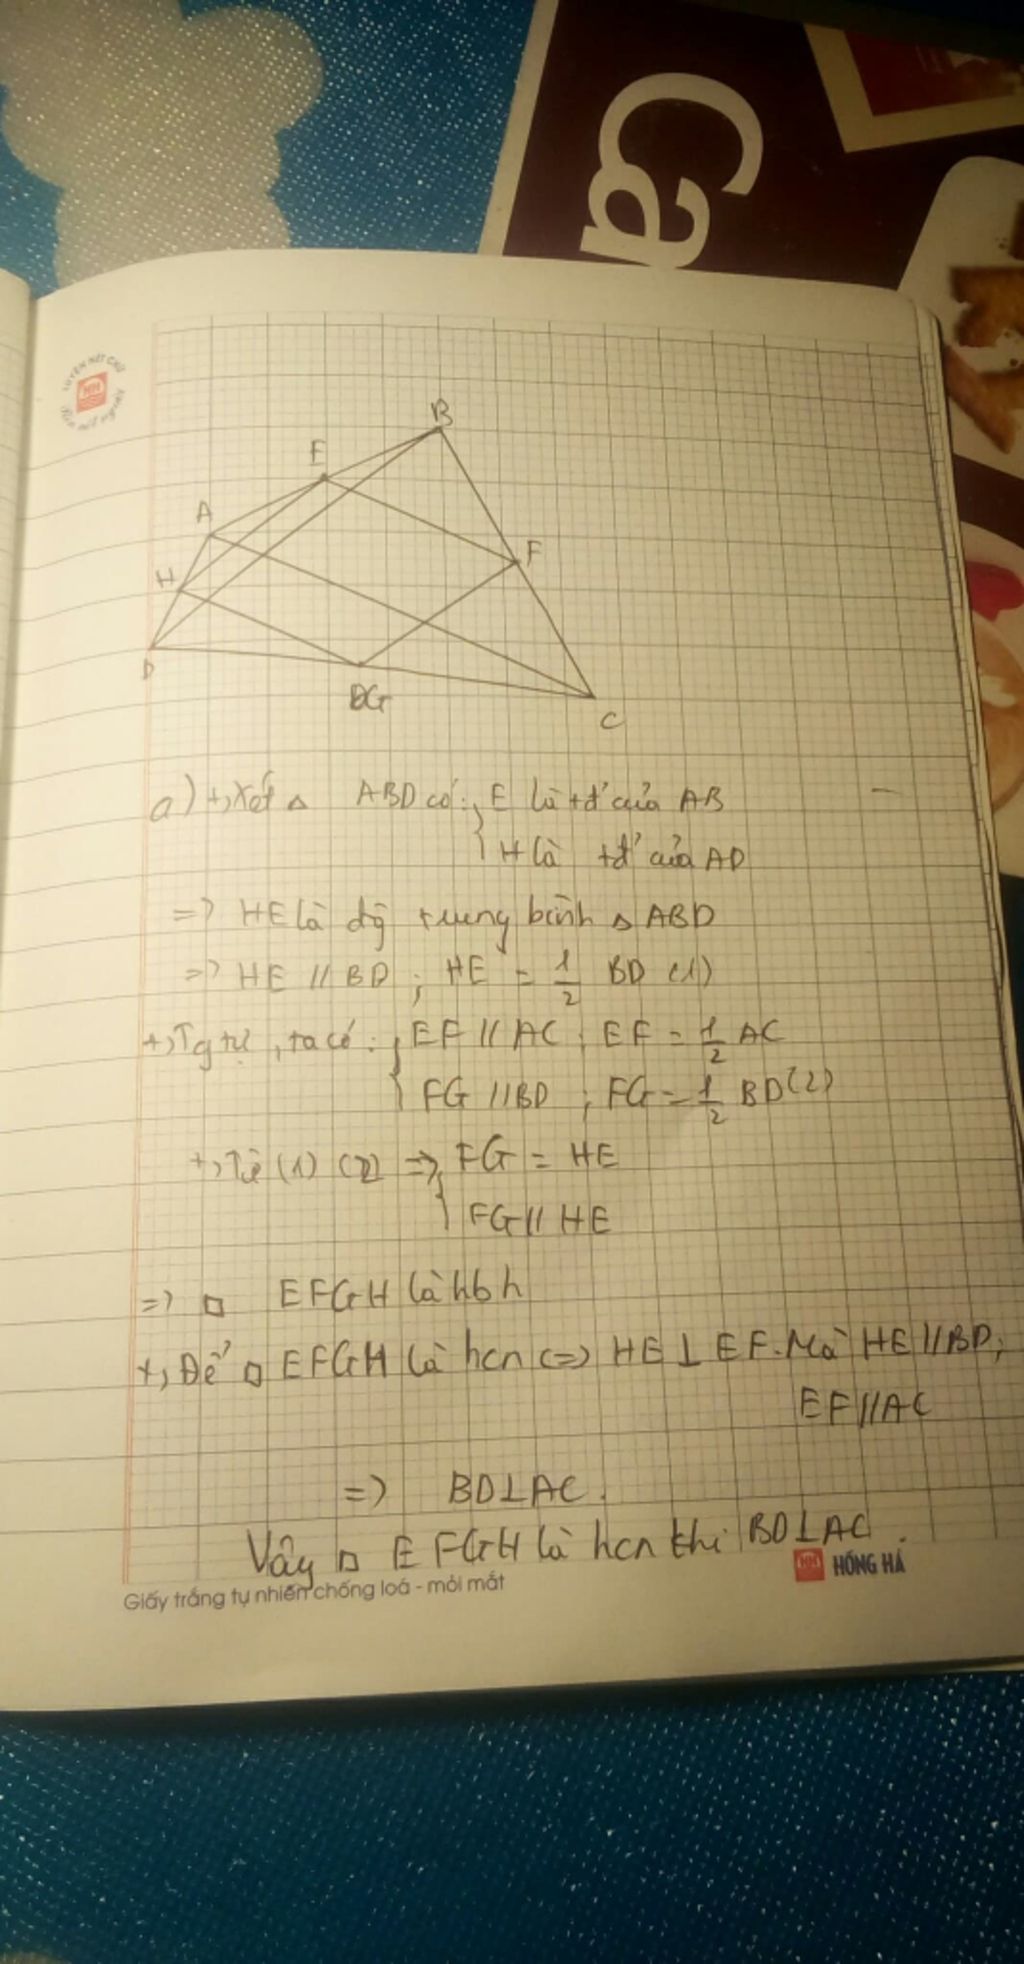 Ca
LUYỆN NÉT CHỮ
HH
Rèn nết người
B
E
A
F
H
D
G
C
a) +, Xét △ ABD có: E là tđ' của AB
H là tđ' của AD
=> HE là đg̀ trung bình △ ABD
=> HE // BD ; HE = 1/2 BD (1)
+, Tg tự, ta có: EF // AC ; EF = 1/2 AC
FG // BD ; FG = 1/2 BD (2)
+, Từ (1) (2) => FG = HE
FG // HE
=> □ EFGH là hbh
+, Để □ EFGH là hcn <=> HE ⊥ EF. Mà HE // BD;
EF // AC
=> BD ⊥ AC.
Vậy □ EFGH là hcn thì BD ⊥ AC.
Giấy trắng tự nhiên chống loá - mỏi mắt
HH HỒNG HÀ